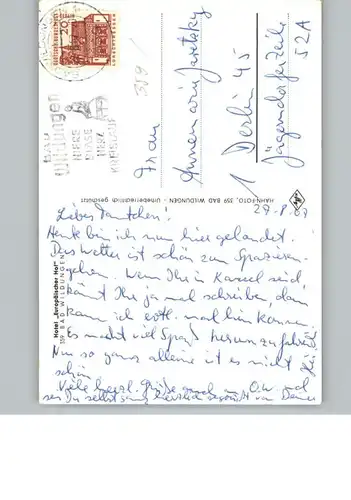 Liebes Tantchen!
27.8.67
Heute bin ich nun hier gelandet.
Das Wetter ist schön zum Spazieren-
gehen. Wenn Ihr in Kassel seid,
könnt Ihr ja mal schreiben, dann
kann ich evtl. mal hin kommen.
Es macht viel Spaß herum zu fahren.
Nur so ganz alleine ist es nicht
schön.
Viele herzl. Grüße auch an O.W. und
sei Du selbst ganz herzlich gegrüßt von Deiner
Frau
Annemarie
1 Berlin 45
Jägerndorfer Zeile
52A
359
BAD
Wildungen
NIERE
BLASE
HERZ
KREISLAUF
DEUTSCHE BUNDESPOST
20
HAHN-FOTO, 359 BAD WILDUNGEN - Urheberrechtlich geschützt
Hotel „Europäischer Hof"
359 BAD WILDUNGEN